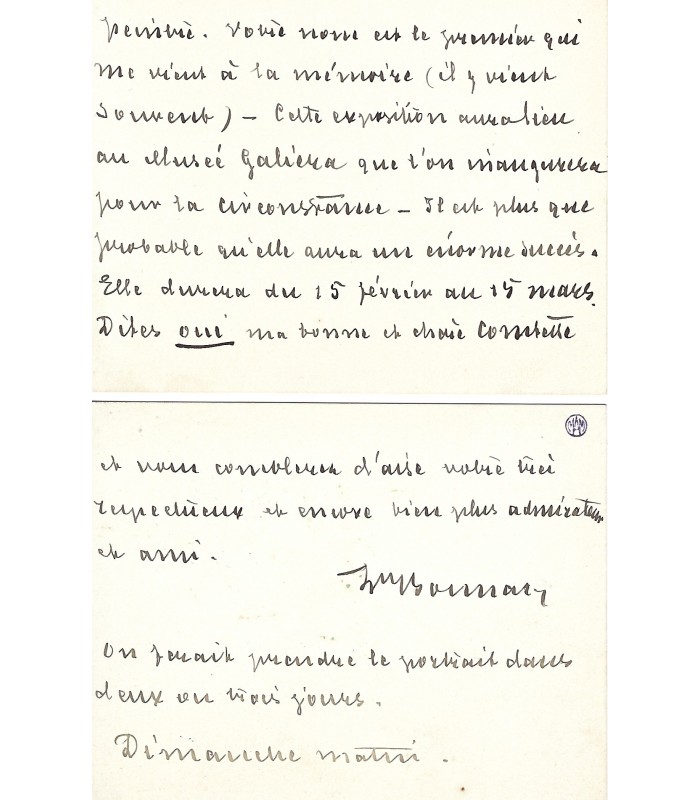 peintre. Votre nom est le premier qui
me vient à la mémoire (il y vient
souvent) – Cette exposition aura lieu
au Musée Galiéra que l'on inaugurera
pour la circonstance – Il est plus que
probable qu'elle aura un énorme succès.
Elle durera du 15 février au 15 mars.
Dites oui ma bonne et chère Comtette
et vous comblerez d'aise votre très
respectueux et encore bien plus admirateur
et ami.
Ln Bonnat
On ferait prendre le portrait dans
deux ou trois jours.
Dimanche matin.